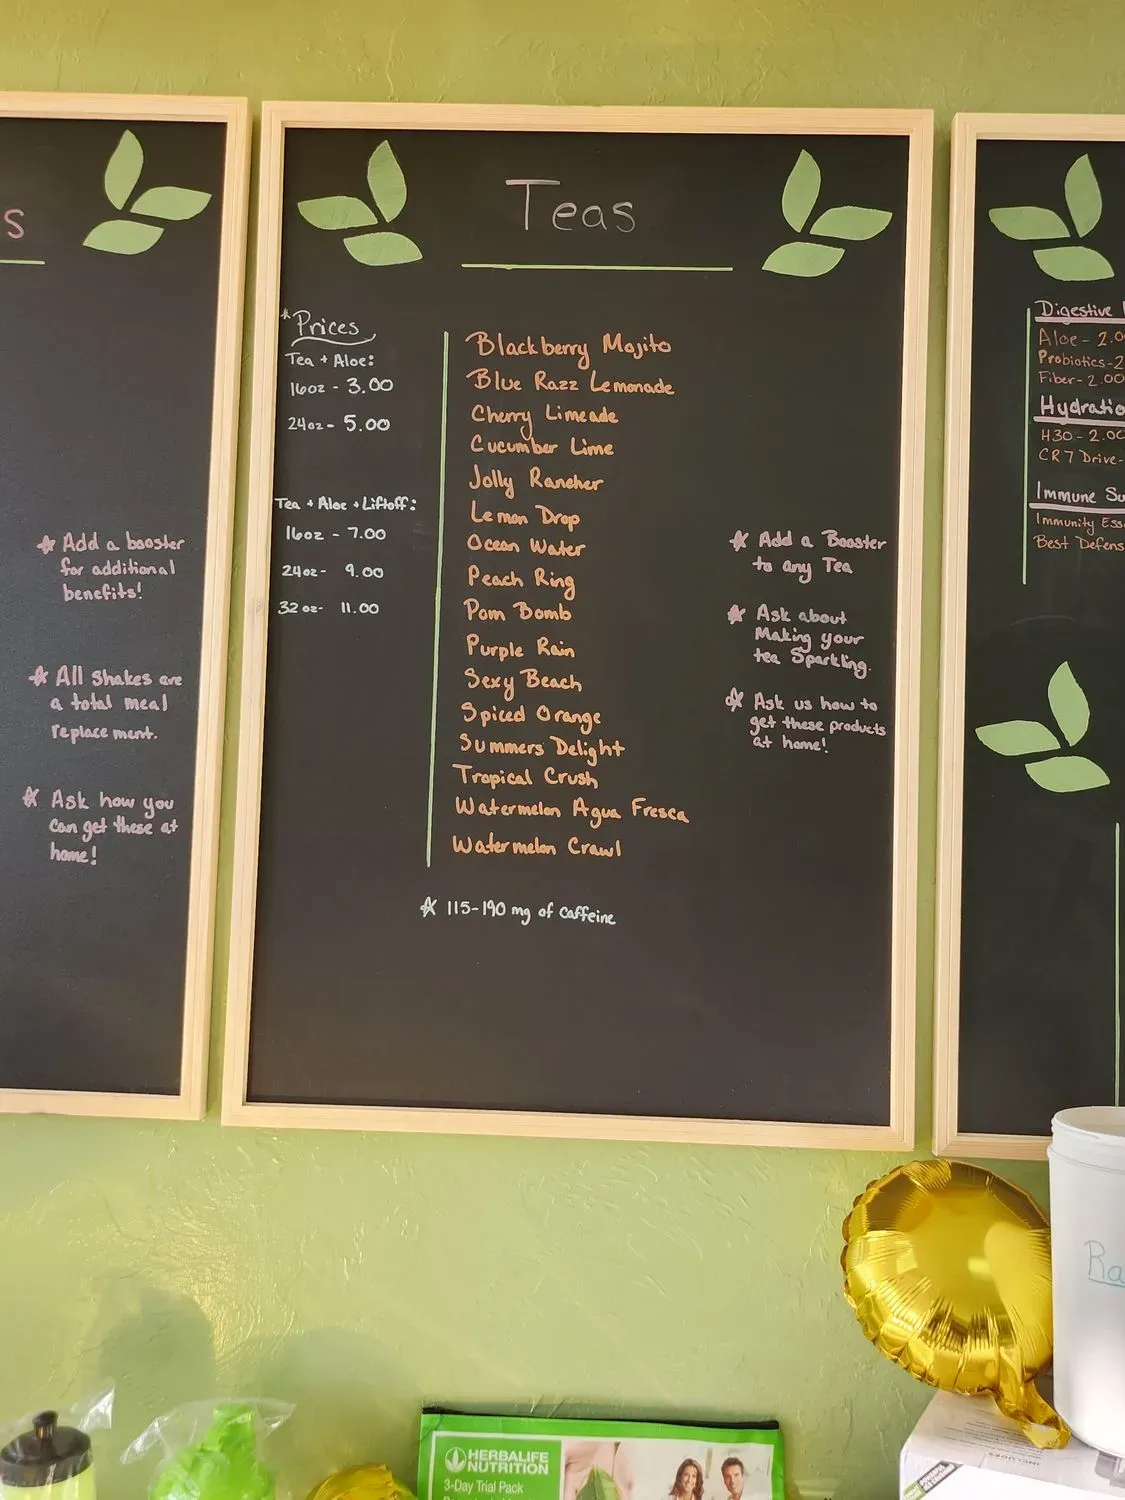 s
★ Add a booster
for additional
benefits!
★ All shakes are
a total meal
replacement.
★ Ask how you
can get these at
home!
Teas
*Prices
Tea + Aloe:
16oz - 3.00
24oz - 5.00
Tea + Aloe + Liftoff:
16oz - 7.00
24oz - 9.00
32oz - 11.00
Blackberry Mojito
Blue Razz Lemonade
Cherry Limeade
Cucumber Lime
Jolly Rancher
Lemon Drop
Ocean Water
Peach Ring
Pom Bomb
Purple Rain
Sexy Beach
Spiced Orange
Summers Delight
Tropical Crush
Watermelon Agua Fresca
Watermelon Crawl
★ 115-190 mg of caffeine
★ Add a Booster
to any Tea
★ Ask about
Making your
tea Sparkling.
★ Ask us how to
get these products
at home!
Digestive
Aloe - 2.0
Probiotics - 2
Fiber - 2.00
Hydratio
H30 - 2.00
CR7 Drive -
Immune Su
Immunity Ess
Best Defens
Ra
HERBALIFE
NUTRITION
3-Day Trial Pack